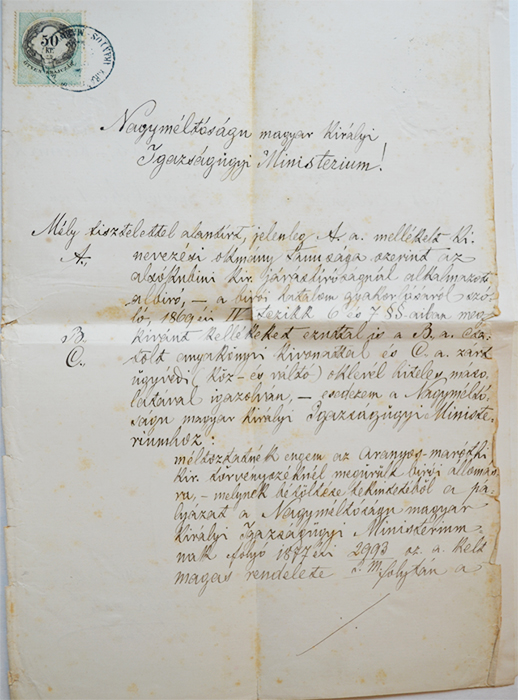 50
KR.
Nagyméltóságu magyar Királyi
Igazságügyi Ministerium!
Mély tisztelettel alantirt, jelenleg A. a. mellékelt ki-
A., nevezési okmány tanusága szerint az
alsókubini kir. járásbiróságnál alkalmazott
albiró, – a birói hatalom gyakorlásáról szó-
ló 1869 évi IV. t. czikk 6 és 7 §§-aiban meg-
B. kivánt kellékeket ezuttal is a B. a. csa-
C. tolt anyakönyi kivonattal és C. a. zárt
ügyvédi (köz- és váltó-) oklevél hiteles máso-
latával igazolván, – esedezem a Nagyméltó-
ságu magyar királyi Igazságügyi Ministe-
riumhoz:
méltóztatnék engem az aranyos-maróthi
kir. törvényszéknél megürült birói állomás-
ra, – melynek betöltése tekintetéből a pá-
lyázat a Nagyméltóságu magyar
királyi Igazságügyi Ministérium-
nak folyó 1877 évi 2993 sz. a. kelt
magas rendelete folytán a